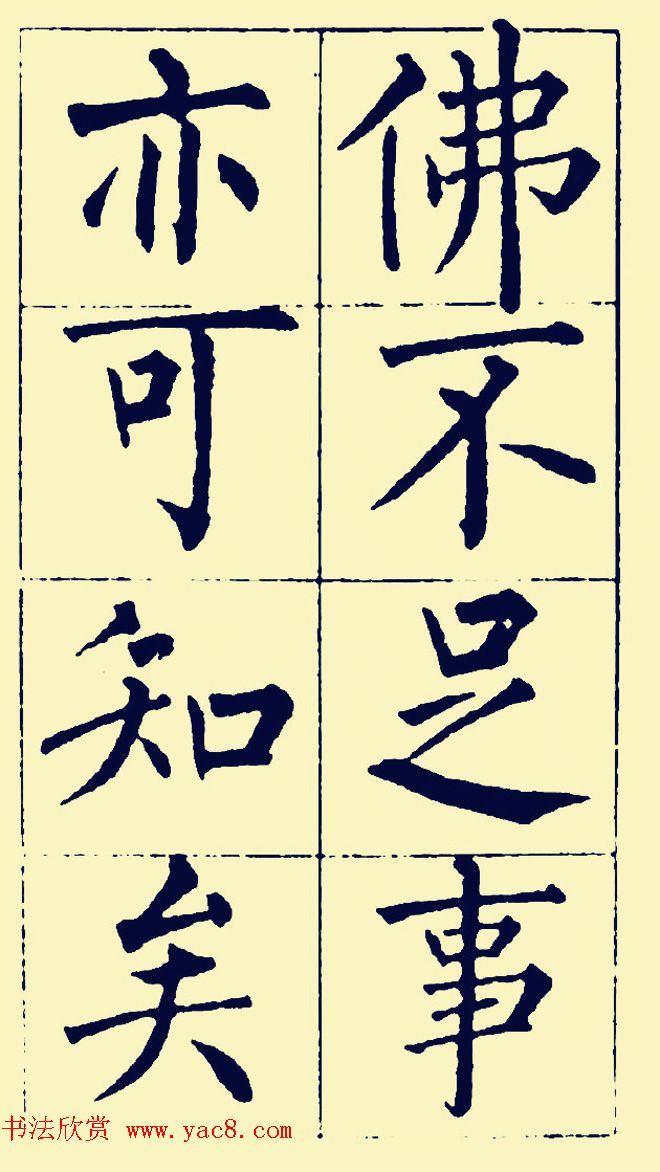 佛不足事
亦可知矣
书法欣赏 www.yac8.com